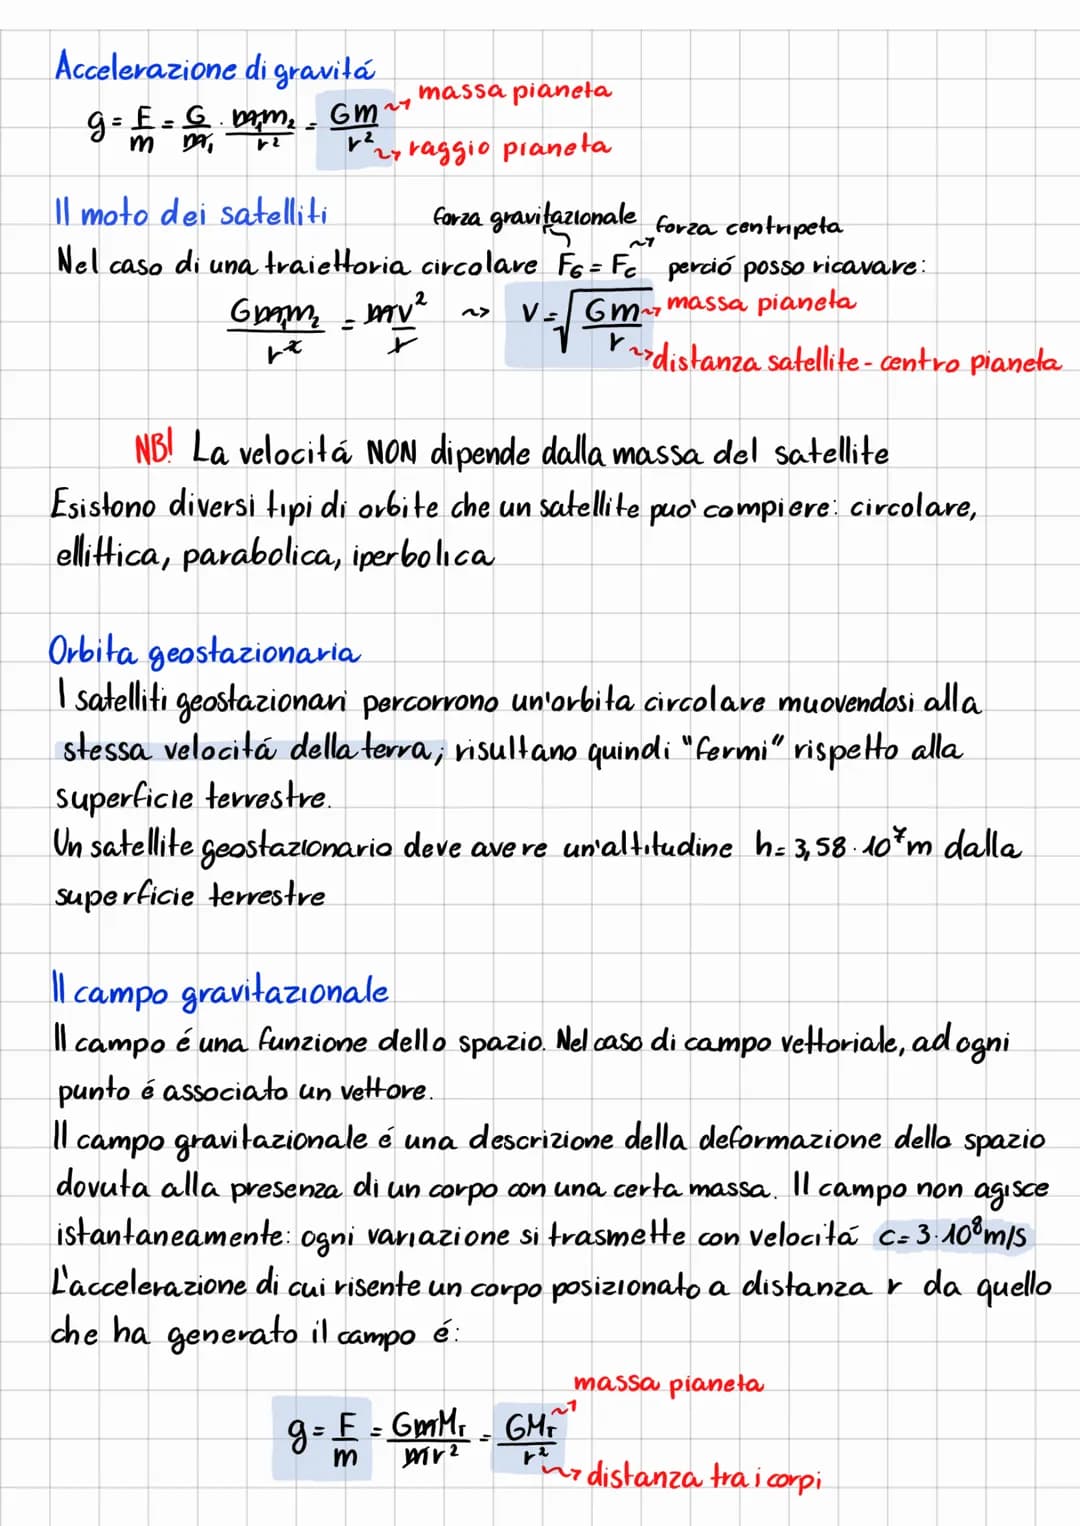 Accelerazione di gravitá
g = F/m = G/m₁ · m₁m₂/r² = Gm/r² ⇝ massa pianeta
⇝ raggio pianeta
Il moto dei satelliti
forza gravitazionale forza centripeta
Nel caso di una traiettoria circolare FG = Fc perció posso ricavare:
Gm₁m₂/r² = mv²/r ⇝ v = √(Gm/r) ⇝ massa pianeta
⇝ distanza satellite - centro pianeta
NB! La velocitá NON dipende dalla massa del satellite
Esistono diversi tipi di orbite che un satellite puo' compiere: circolare,
ellittica, parabolica, iperbolica
Orbita geostazionaria
I satelliti geostazionari percorrono un'orbita circolare muovendosi alla
stessa velocitá della terra; risultano quindi "fermi" rispetto alla
superficie terrestre.
Un satellite geostazionario deve avere un'altitudine h = 3,58 · 10⁷m dalla
superficie terrestre
Il campo gravitazionale
Il campo é una funzione dello spazio. Nel caso di campo vettoriale, ad ogni
punto é associato un vettore.
Il campo gravitazionale é una descrizione della deformazione dello spazio
dovuta alla presenza di un corpo con una certa massa. Il campo non agisce
istantaneamente: ogni variazione si trasmette con velocitá c = 3 · 10⁸m/s
L'accelerazione di cui risente un corpo posizionato a distanza r da quello
che ha generato il campo é:
massa pianeta
g = F/m = GmMT/mr² = GMT/r²
⇝ distanza tra i corpi